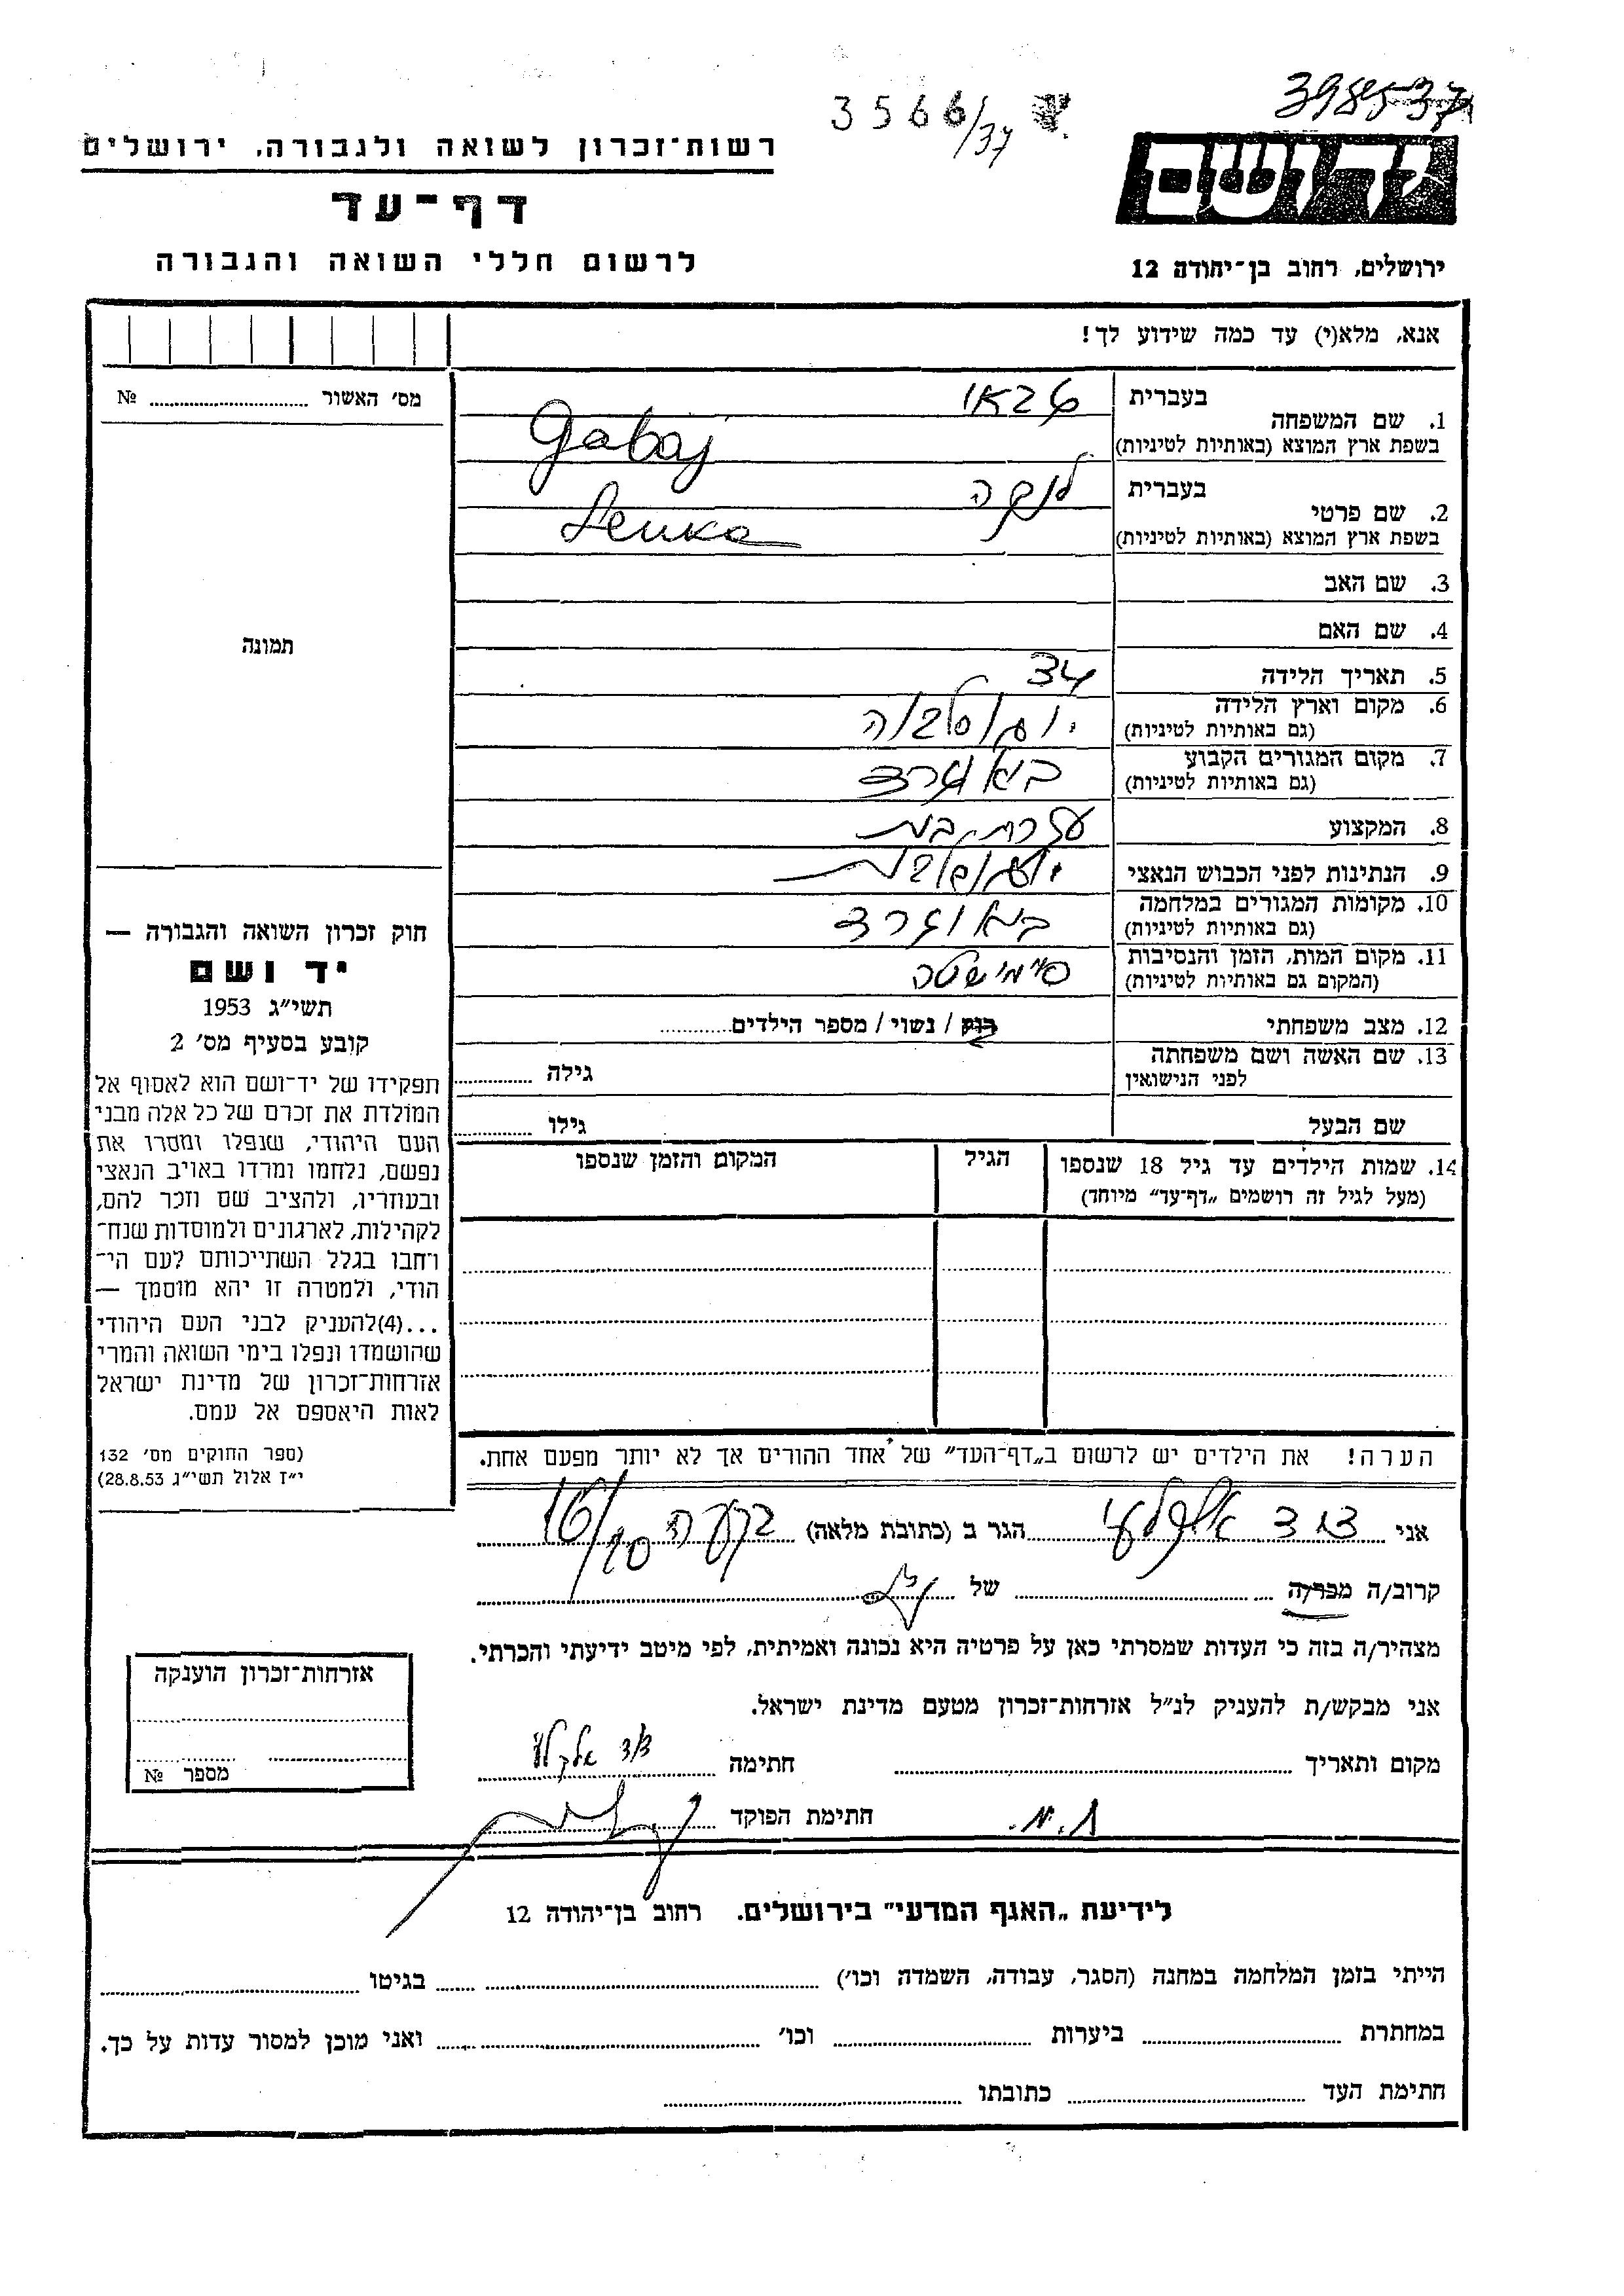 398537
3566/37
רשות־זכרון לשואה ולגבורה, ירושלים
דף־עד
לרשום חללי השואה והגבורה
ידושם
ירושלים, רחוב בן־יהודה 12
אנא, מלא(י) עד כמה שידוע לך!
מס׳ האשור № 
1. שם המשפחה בעברית גבאי
בשפת ארץ המוצא (באותיות לטיניות) Gabaj
2. שם פרטי בעברית לנקה
בשפת ארץ המוצא (באותיות לטיניות) Lenka
3. שם האב
4. שם האם
תמונה
5. תאריך הלידה 34
6. מקום וארץ הלידה יוגוסלביה
(גם באותיות לטיניות)
7. מקום המגורים הקבוע באוגרד
(גם באותיות לטיניות)
8. המקצוע עזרת בית
9. הנתינות לפני הכבוש הנאצי יוגוסלבית
10. מקומות המגורים במלחמה באוגרד
(גם באותיות לטיניות)
11. מקום המות, הזמן והנסיבות סיימישטה
(המקום גם באותיות לטיניות)
12. מצב משפחתי רוק / נשוי / מספר הילדים
13. שם האשה ושם משפחתה
לפני הנישואין גילה
שם הבעל גילו
14. שמות הילדים עד גיל 18 שנספו הגיל המקום והזמן שנספו
(מעל לגיל זה רושמים „דף־עד״ מיוחד)
חוק זכרון השואה והגבורה —
יד ושם
תשי״ג 1953
קובע בסעיף מס׳ 2
תפקידו של יד־ושם הוא לאסוף אל
המולדת את זכרם של כל אלה מבני
העם היהודי, שנפלו ומסרו את
נפשם, נלחמו ומרדו באויב הנאצי
ובעוזריו, ולהציב שם וזכר להם,
לקהילות, לארגונים ולמוסדות שנח־
רחבו בגלל השתייכותם לעם הי־
הודי, ולמטרה זו יהא מוסמך —
...(4)להעניק לבני העם היהודי
שהושמדו ונפלו בימי השואה והמרי
אזרחות־זכרון של מדינת ישראל
לאות היאספם אל עמם.
(ספר החוקים מס׳ 132
י״ז אלול תשי״ג 28.8.53)
הערה! את הילדים יש לרשום ב„דף־העד״ של אחד ההורים אך לא יותר מפעם אחת.
אני דוד אלקלעי הגר ב (כתובת מלאה) בקעה 10/16
קרוב/ה מכר/ה של
מצהיר/ה בזה כי העדות שמסרתי כאן על פרטיה היא נכונה ואמיתית, לפי מיטב ידיעתי והכרתי.
אני מבקש/ת להעניק לנ״ל אזרחות־זכרון מטעם מדינת ישראל.
מקום ותאריך חתימה דוד אלקלעי
חתימת הפוקד
אזרחות־זכרון הוענקה
מספר №
לידיעת „האגף המדעי״ בירושלים. רחוב בן־יהודה 12
הייתי בזמן המלחמה במחנה (הסגר, עבודה, השמדה וכו׳) בגיטו
במחתרת ביערות וכו׳ ואני מוכן למסור עדות על כך.
חתימת העד כתובתו